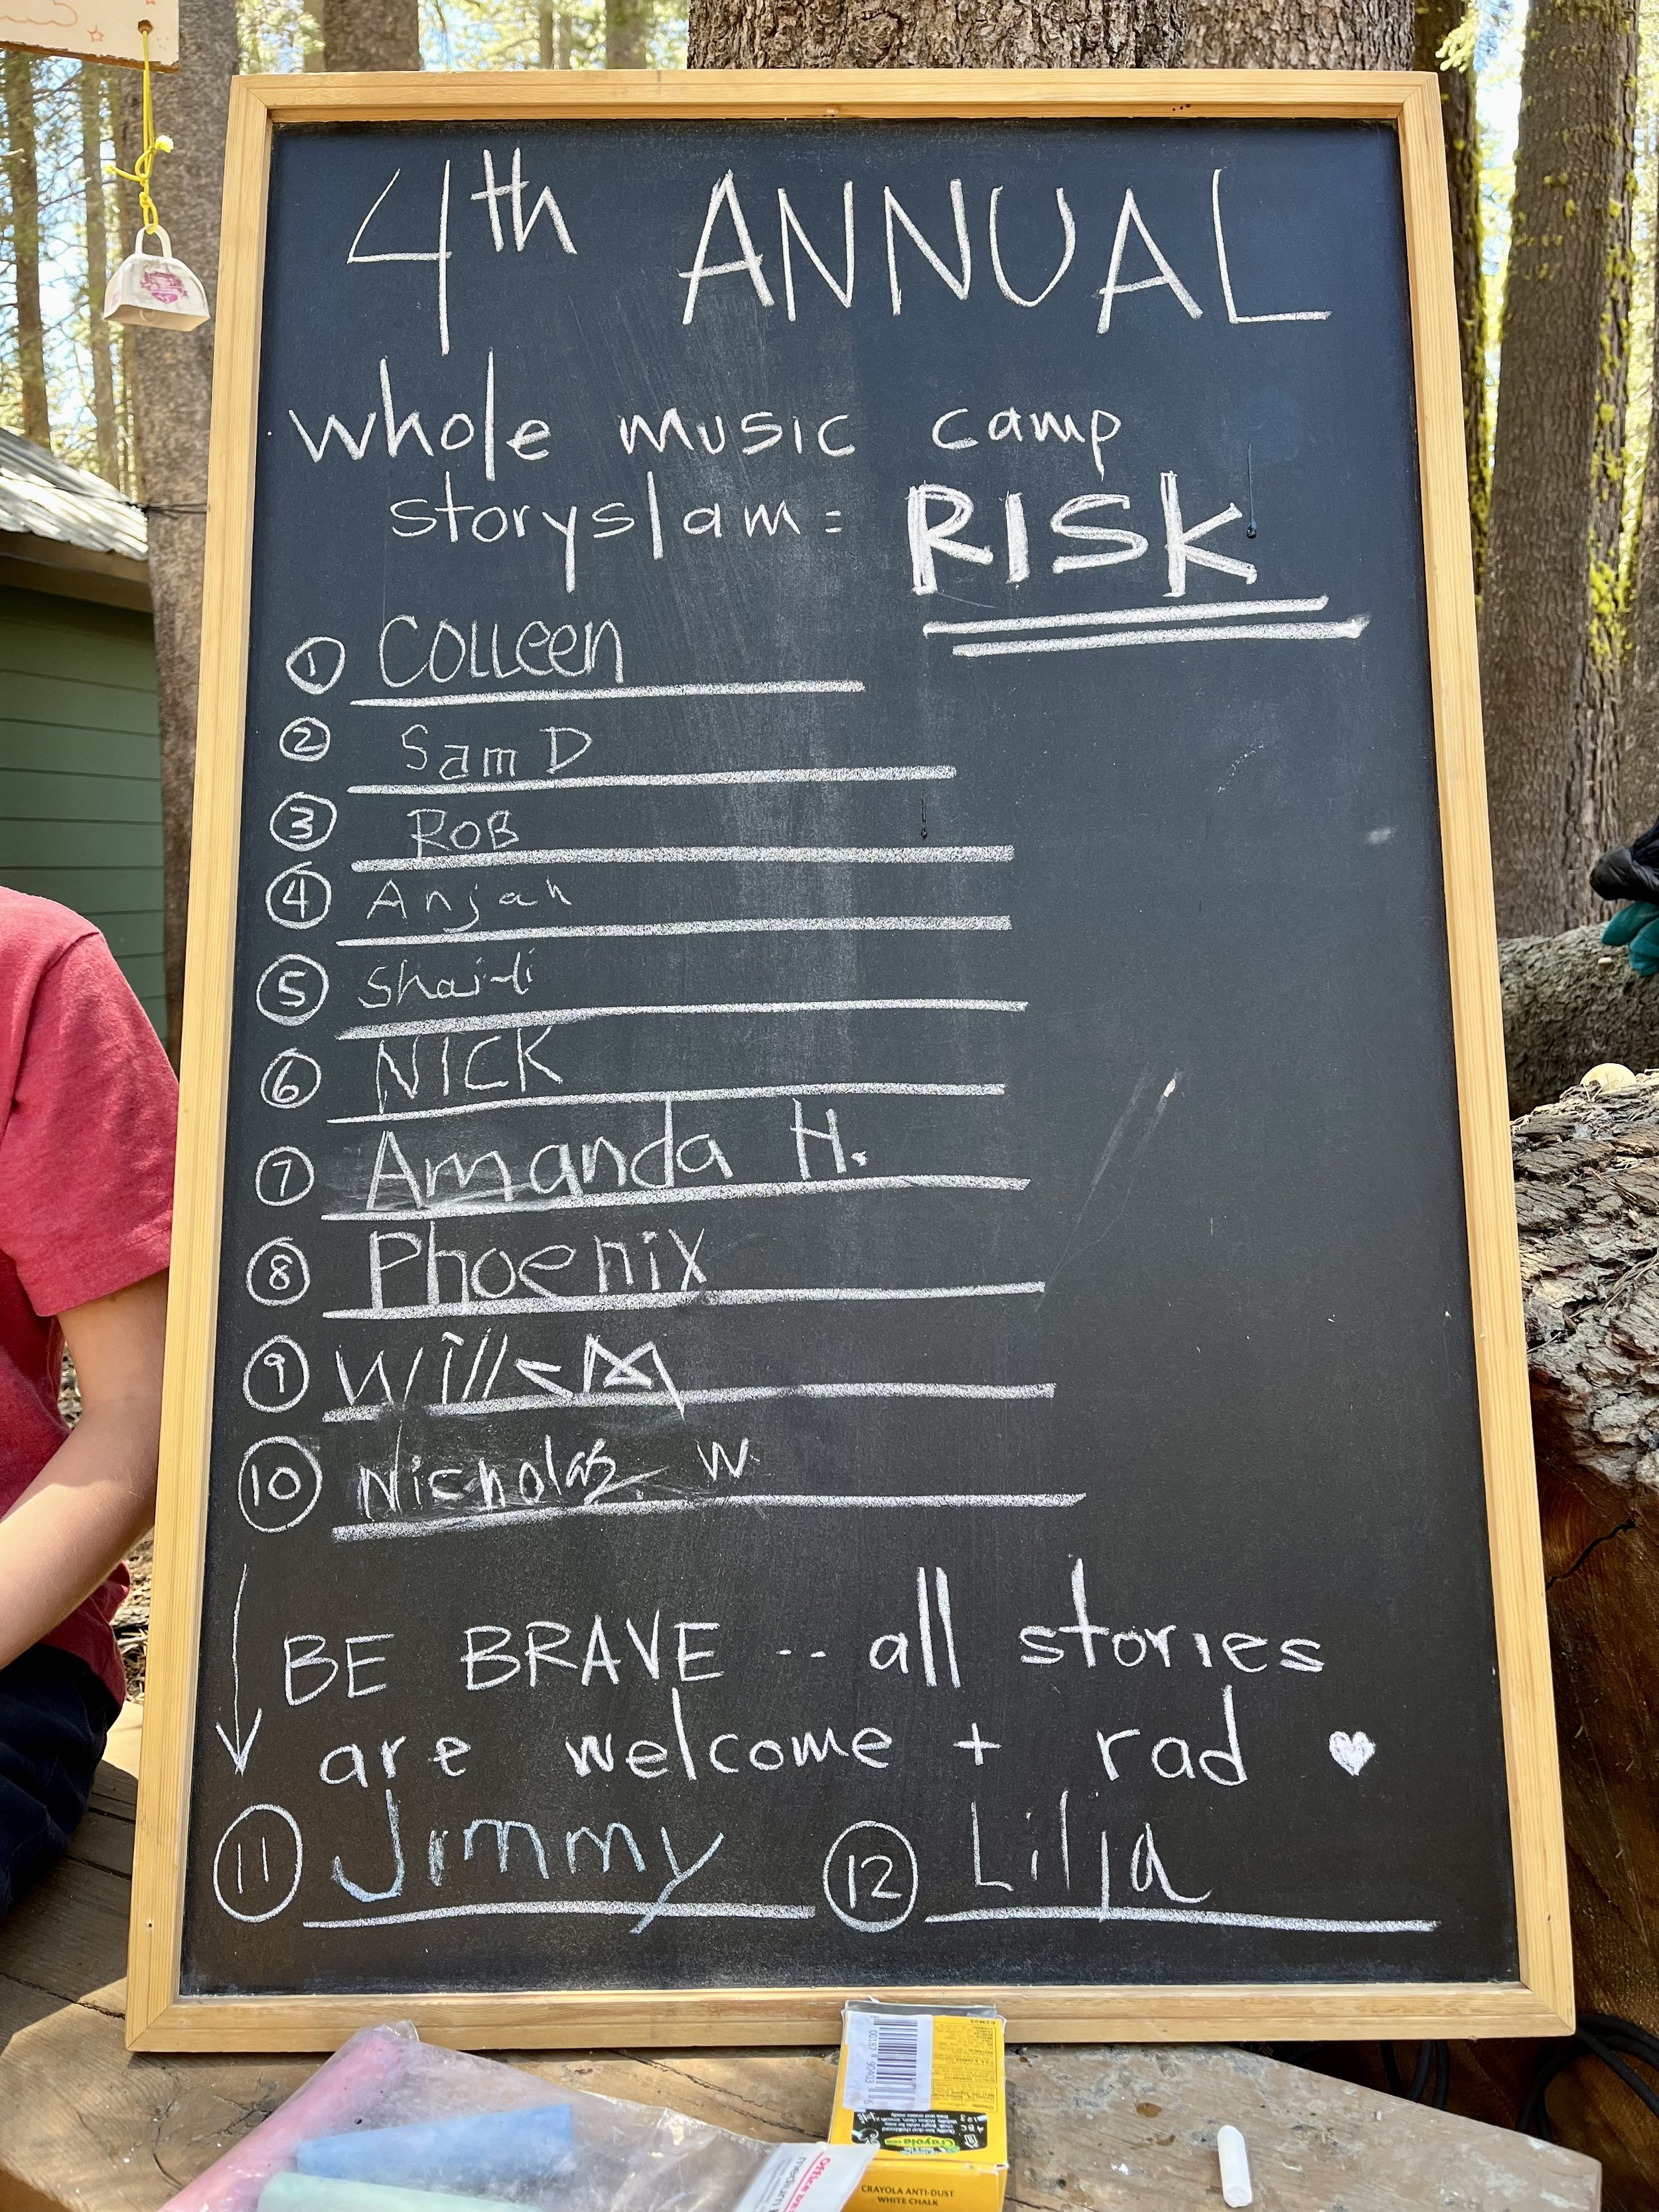 4th ANNUAL
whole music camp
storyslam = RISK
1 Colleen
2 Sam D
3 ROB
4 Anjah
5
6 NICK
7 Amanda H.
8 Phoenix
9
10 Nicholas. W.
BE BRAVE -- all stories
are welcome + rad ♥
11 Jimmy 12 Lilja
Crayola
CRAYOLA ANTI-DUST
WHITE CHALK